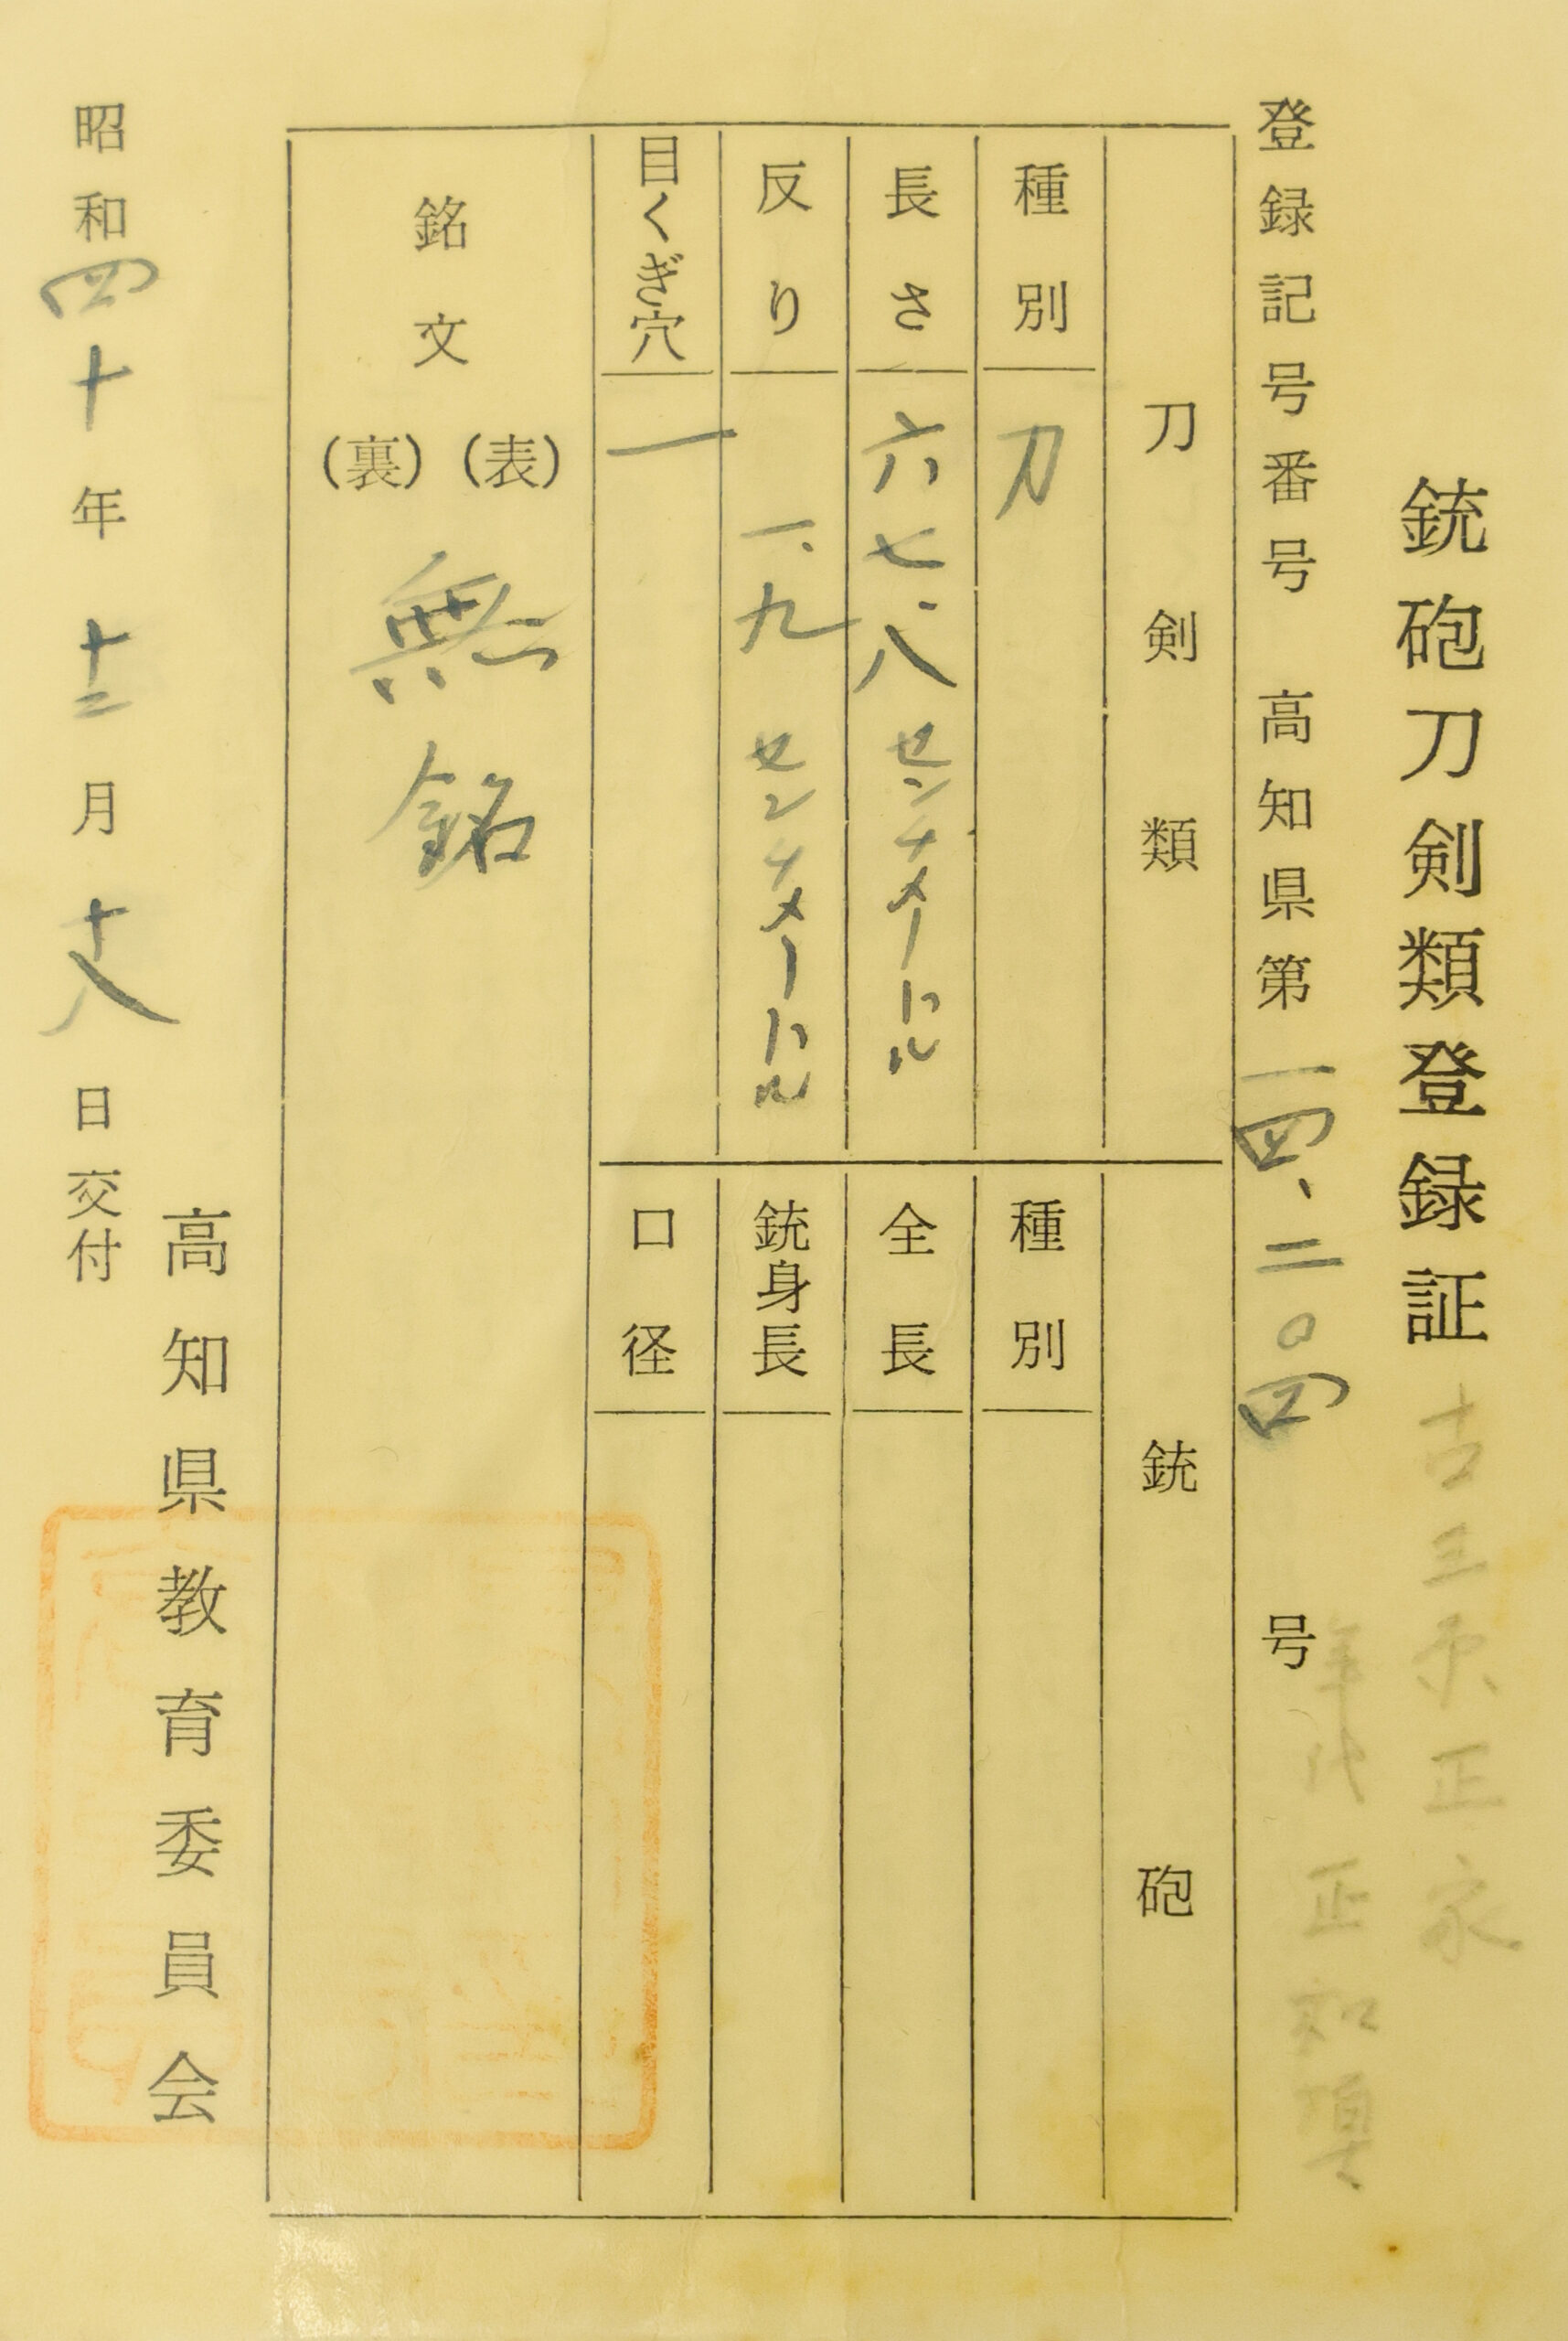 銃砲刀剣類登録証
古三原正家
年代 正和頃
登録記号番号 高知県第一四、二〇四号
刀剣類
種別 刀
長さ 六七、八センチメートル
反り 一、九センチメートル
目くぎ穴 一
銃砲
種別
全長
銃身長
口径
銘文
(表)
(裏)
無銘
高知県教育委員会
昭和四十年十二月十八日交付